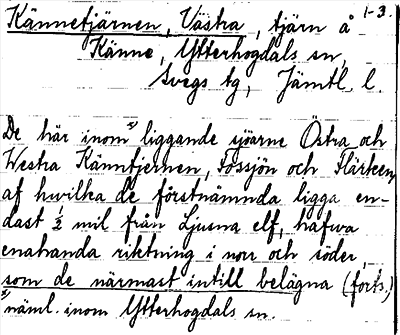 1-3.
Kännetjärnen, Västra, tjärn å
Känne, Ytterhogdals sn,
Svegs tg, Jämtl. l.
De här inom x) liggande sjöarne Östra och
Westra Känntjernen, Fossjön och Flärken,
af hwilka de förstnämnda ligga en-
dast ½ mil från Ljusna elf, hafwa
enahanda riktning i norr och söder,
som de närmast intill belägna (forts.)
x) näml. inom Ytterhogdals sn.